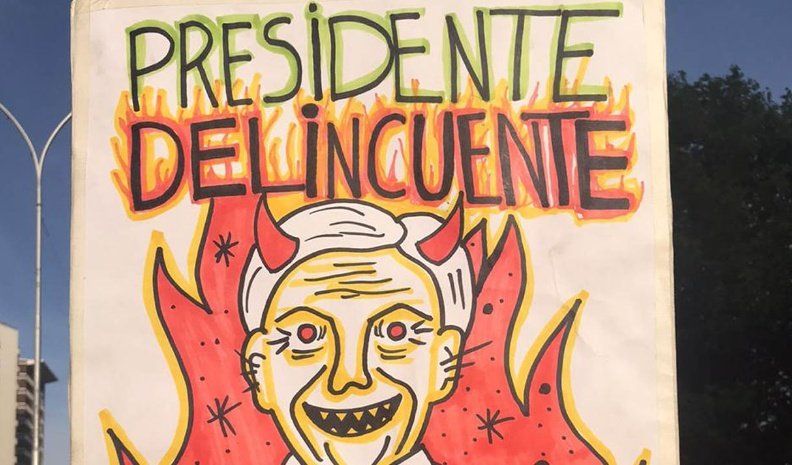 PRESiDENTE
DELiNCUENTE